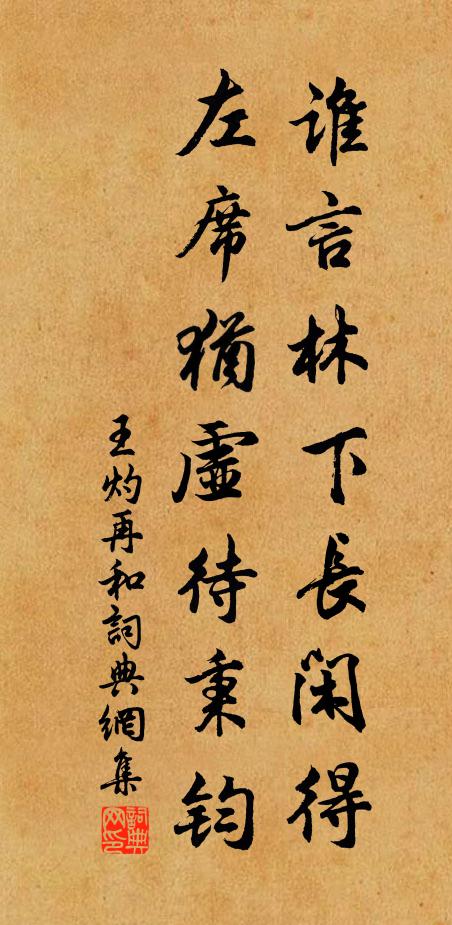 谁言林下長閑得
左席猶虛待秉鈞
王灼再和詞典網集
詞典
网印